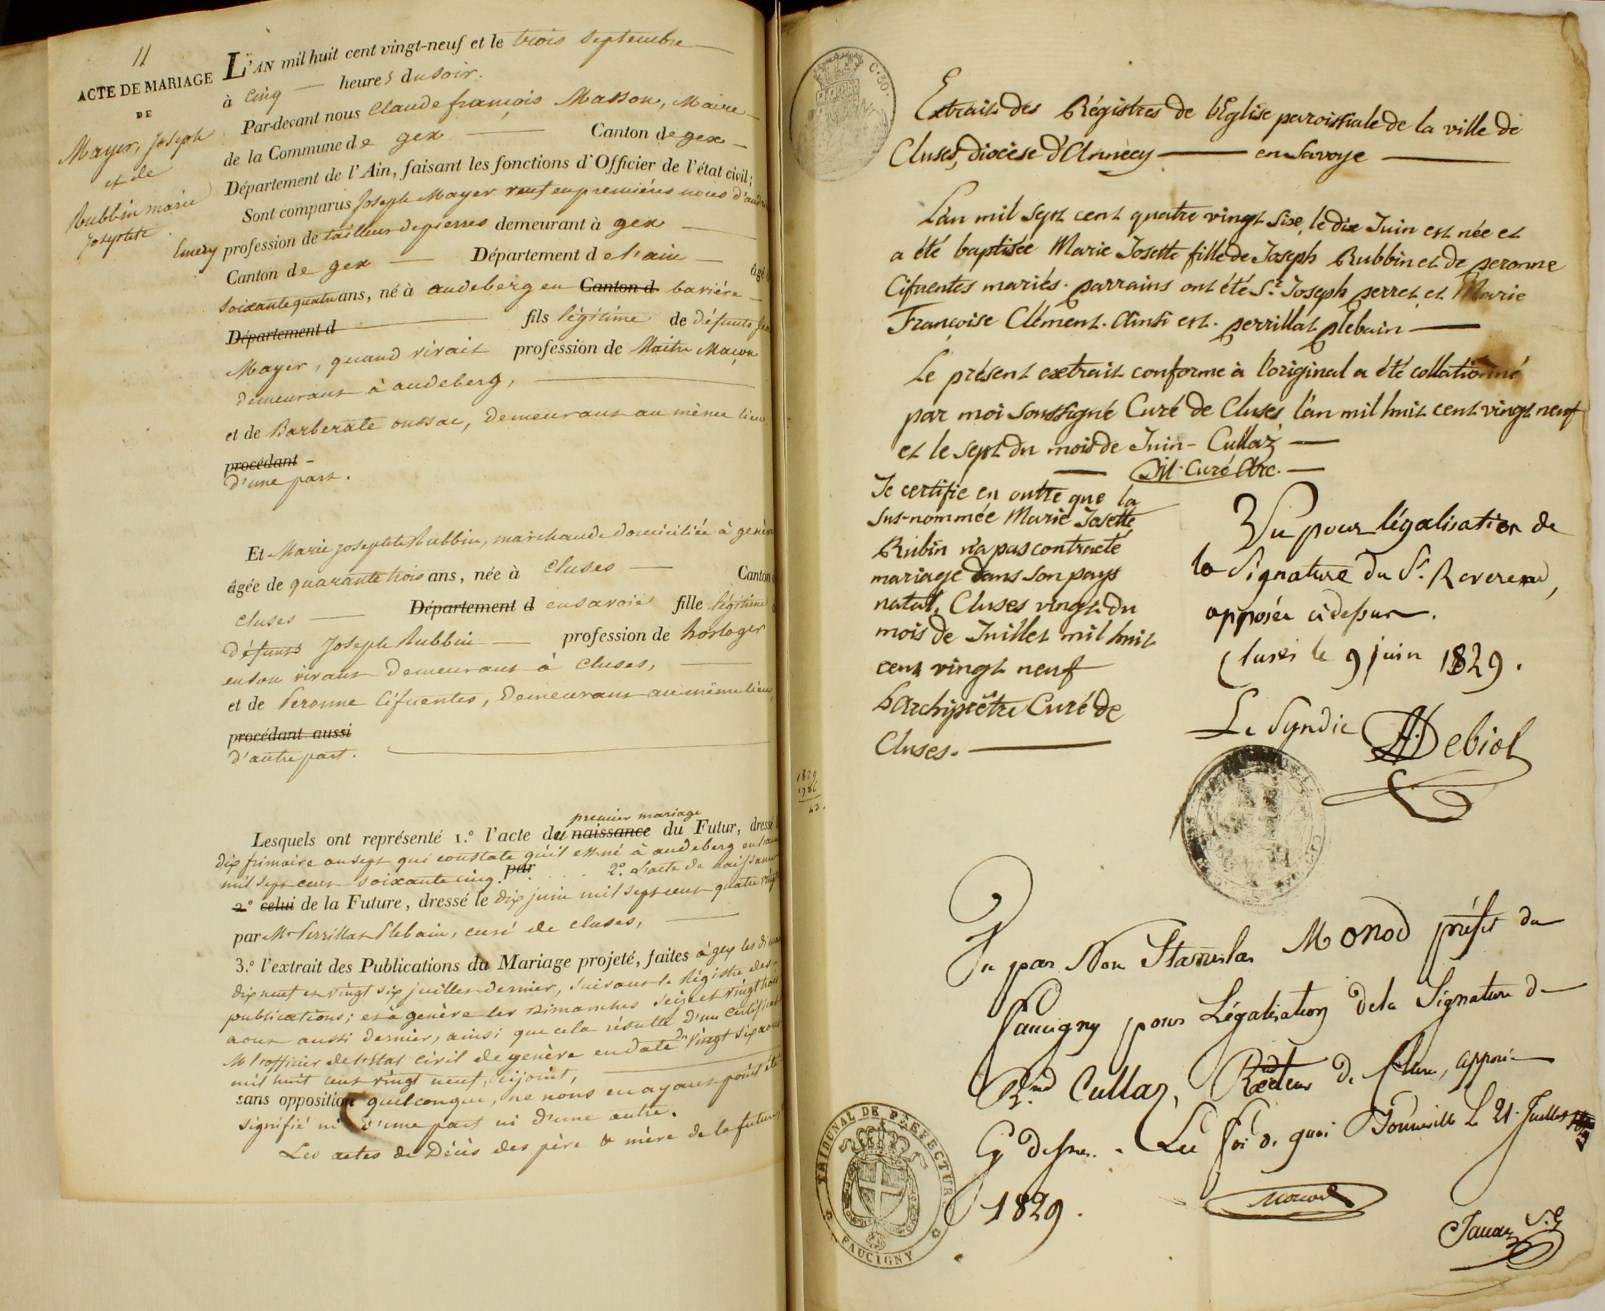 11
ACTE DE MARIAGE
DE
Mayer, Joseph
et de
Rubbin marie
josephte
L'AN mil huit cent vingt-neuf et le trois septembre
à cinq heures du soir.
Par-devant nous Claude françois Masson, Maire
de la Commune de gex Canton de gex
Département de l'Ain, faisant les fonctions d'Officier de l'état civil;
Sont comparus Joseph Mayer veuf en premières noces d'
Emery profession de tailleur de pierres demeurant à gex
Canton de gex Département de l'ain âgé
soixante quatre ans, né à audeberg en Canton d bavière
Département d fils légitime de défunts
Mayer, quand vivait profession de Maitre Maçon
demeurant à audeberg,
et de Barberate oussac, demeurant au même lieu
procédant
d'une part.
Et Marie josephte Rubbin, marchande domiciliée à genève
âgée de quarante trois ans, née à Cluses Canton
cluses Département d en savoie fille légitime
défunts Joseph Rubbin profession de horloger
en son vivant demeurant à cluses,
et de Peronne Cifuentes, demeurant au même lieu,
procédant aussi
d'autre part.
premier mariage
Lesquels ont représenté 1.º l'acte de naissance du Futur, dressé
dix frimaire an sept qui constate qu'il est né à audeberg en
mil sept cent soixante cinq. par 2º. L'acte de naissance
2º celui de la Future, dressé le dix juin mil sept cent quatre vingt
par Mr Perrillat Plebain, curé de cluses,
3.º l'extrait des Publications du Mariage projeté, faites à gex les
dix neuf et vingt six juillet dernier, suivant le Régistre des
publications; et à genève les Dimanches seize et vingt trois
aout aussi dernier, ainsi que cela résulte d'un certificat
Mr l'officier de l'état civil de genève en date du vingt six aout
mil huit cent vingt neuf, cijoint,
sans opposition quelconque, ne nous en ayant point été
signifié ni d'une part ni d'une autre.
Les actes de Décès des père & mère de la future
Extrait des Régistres de l'Eglise paroissiale de la ville de
Cluses, diocèse d'Annecy en Savoye
L'an mil sept cent quatre vingt six, le dix Juin est née et
a été baptisée Marie Josette fille de Joseph Rubbin et de peronne
Cifuentes mariés. parrains ont été Sr. Joseph perret et Marie
Françoise Clément. Ainsi est. perrillat plebain
Le présent extrait conforme à l'original a été collationné
par moi soussigné Curé de Cluses l'an mil huit cent vingt neuf
et le sept du mois de Juin - Cullaz
Curé Arc.
Je certifie en outre que la
sus-nommée Marie Josette
Rubin n'a pas contracté
mariage dans son pays
natal. Cluses vingt du
mois de Juillet mil huit
cent vingt neuf
L'Archiprêtre Curé de
Cluses.
Vu pour légalisation de
la Signature du Sr. Reverend,
apposée cidessus.
Cluses le 9 juin 1829.
Le Syndic Debiol
1829
1786
43.
Vu par Nou Stanislas Monod préfet du
Faucigny pour Légalisation de la Signature de
Rnd Cullaz, Recteur de Cluse, apposée
Cy dessus. En foi de quoi Bonneville Le 21 Juillet
1829.
Monod
TRIBUNAL DE PRÉFECTURE
FAUCIGNY